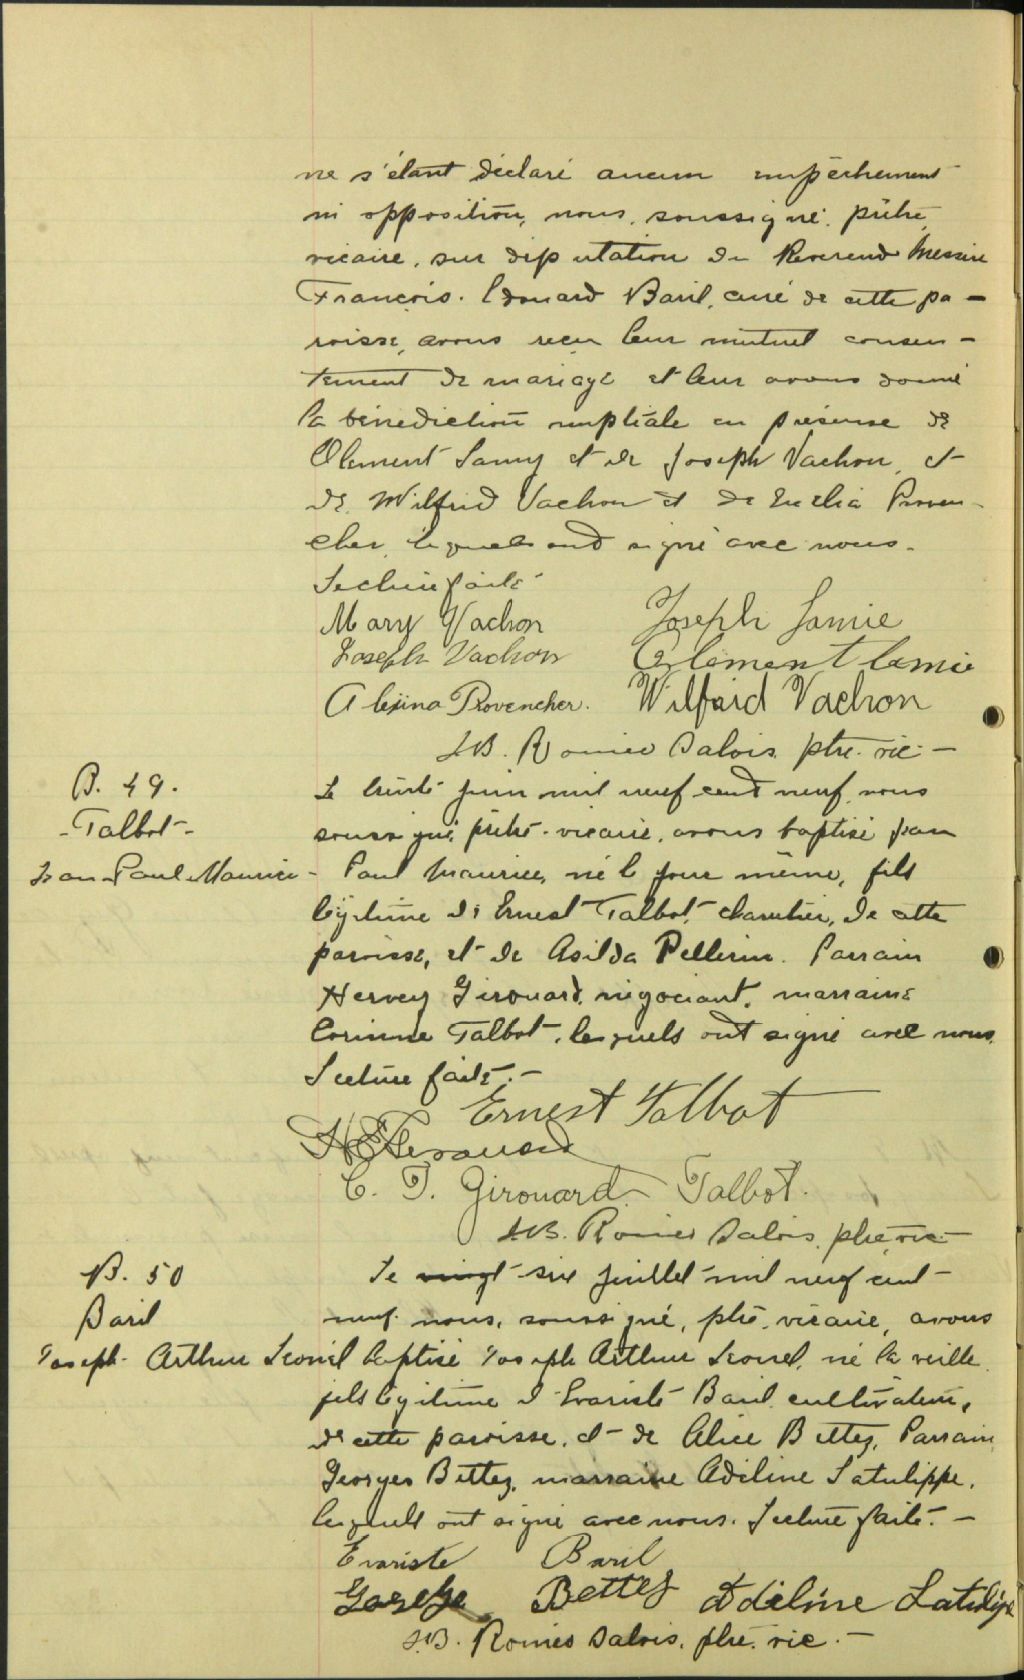 ne s'étant déclaré aucun empêchement
ni opposition, nous, soussigné, prêtre,
vicaire, sur députation du Reverend Messire
François-Edouard Baril, curé de cette pa-
roisse, avons reçu leur mutuel consen-
tement de mariage et leur avons donné
la bénédiction nuptiale en présence de
Clement Lamy et de Joseph Vachon, et
de Wilfrid Vachon et de Proven-
cher, lesquels ont signé avec nous.
Lecture faite
Mary Vachon Joseph Lamie
Joseph Vachon Clement Lamie
Provencher. Wilfrid Vachon
J.B. Romeo Salois, ptre. vic. —
B. 49.
-Talbot-
Jean-Paul-Maurice-
Le trente juin mil neuf cent neuf, nous
soussigné, prêtre-vicaire, avons baptisé Jean
Paul Maurice, né le jour même, fils
légitime d'Ernest Talbot, charretier, de cette
paroisse, et de Asilda Pellerin. Parrain
Hervey Girouard, négociant, marraine
Corinne Talbot, lesquels ont signé avec nous.
Lecture faite. —
Ernest Talbot
H. Girouard
C. T. Girouard Talbot.
J.B. Romeo Salois, ptre, vic —
B. 50
Baril
Joseph Arthur Leonel
Le vingt six juillet mil neuf cent
neuf nous, soussigné, ptre, vicaire, avons
baptisé Joseph Arthur Leonel, né la veille
fils légitime d'Evariste Baril, cultivateur,
de cette paroisse, et de Alice Bettez, Parrain
Georges Bettez, marraine Adéline Latulippe,
lesquels ont signé avec nous. Lecture faite. —
Evariste Baril
George Bettez Adéline Latulipe
J.B. Romeo Salois, ptre. vic. —